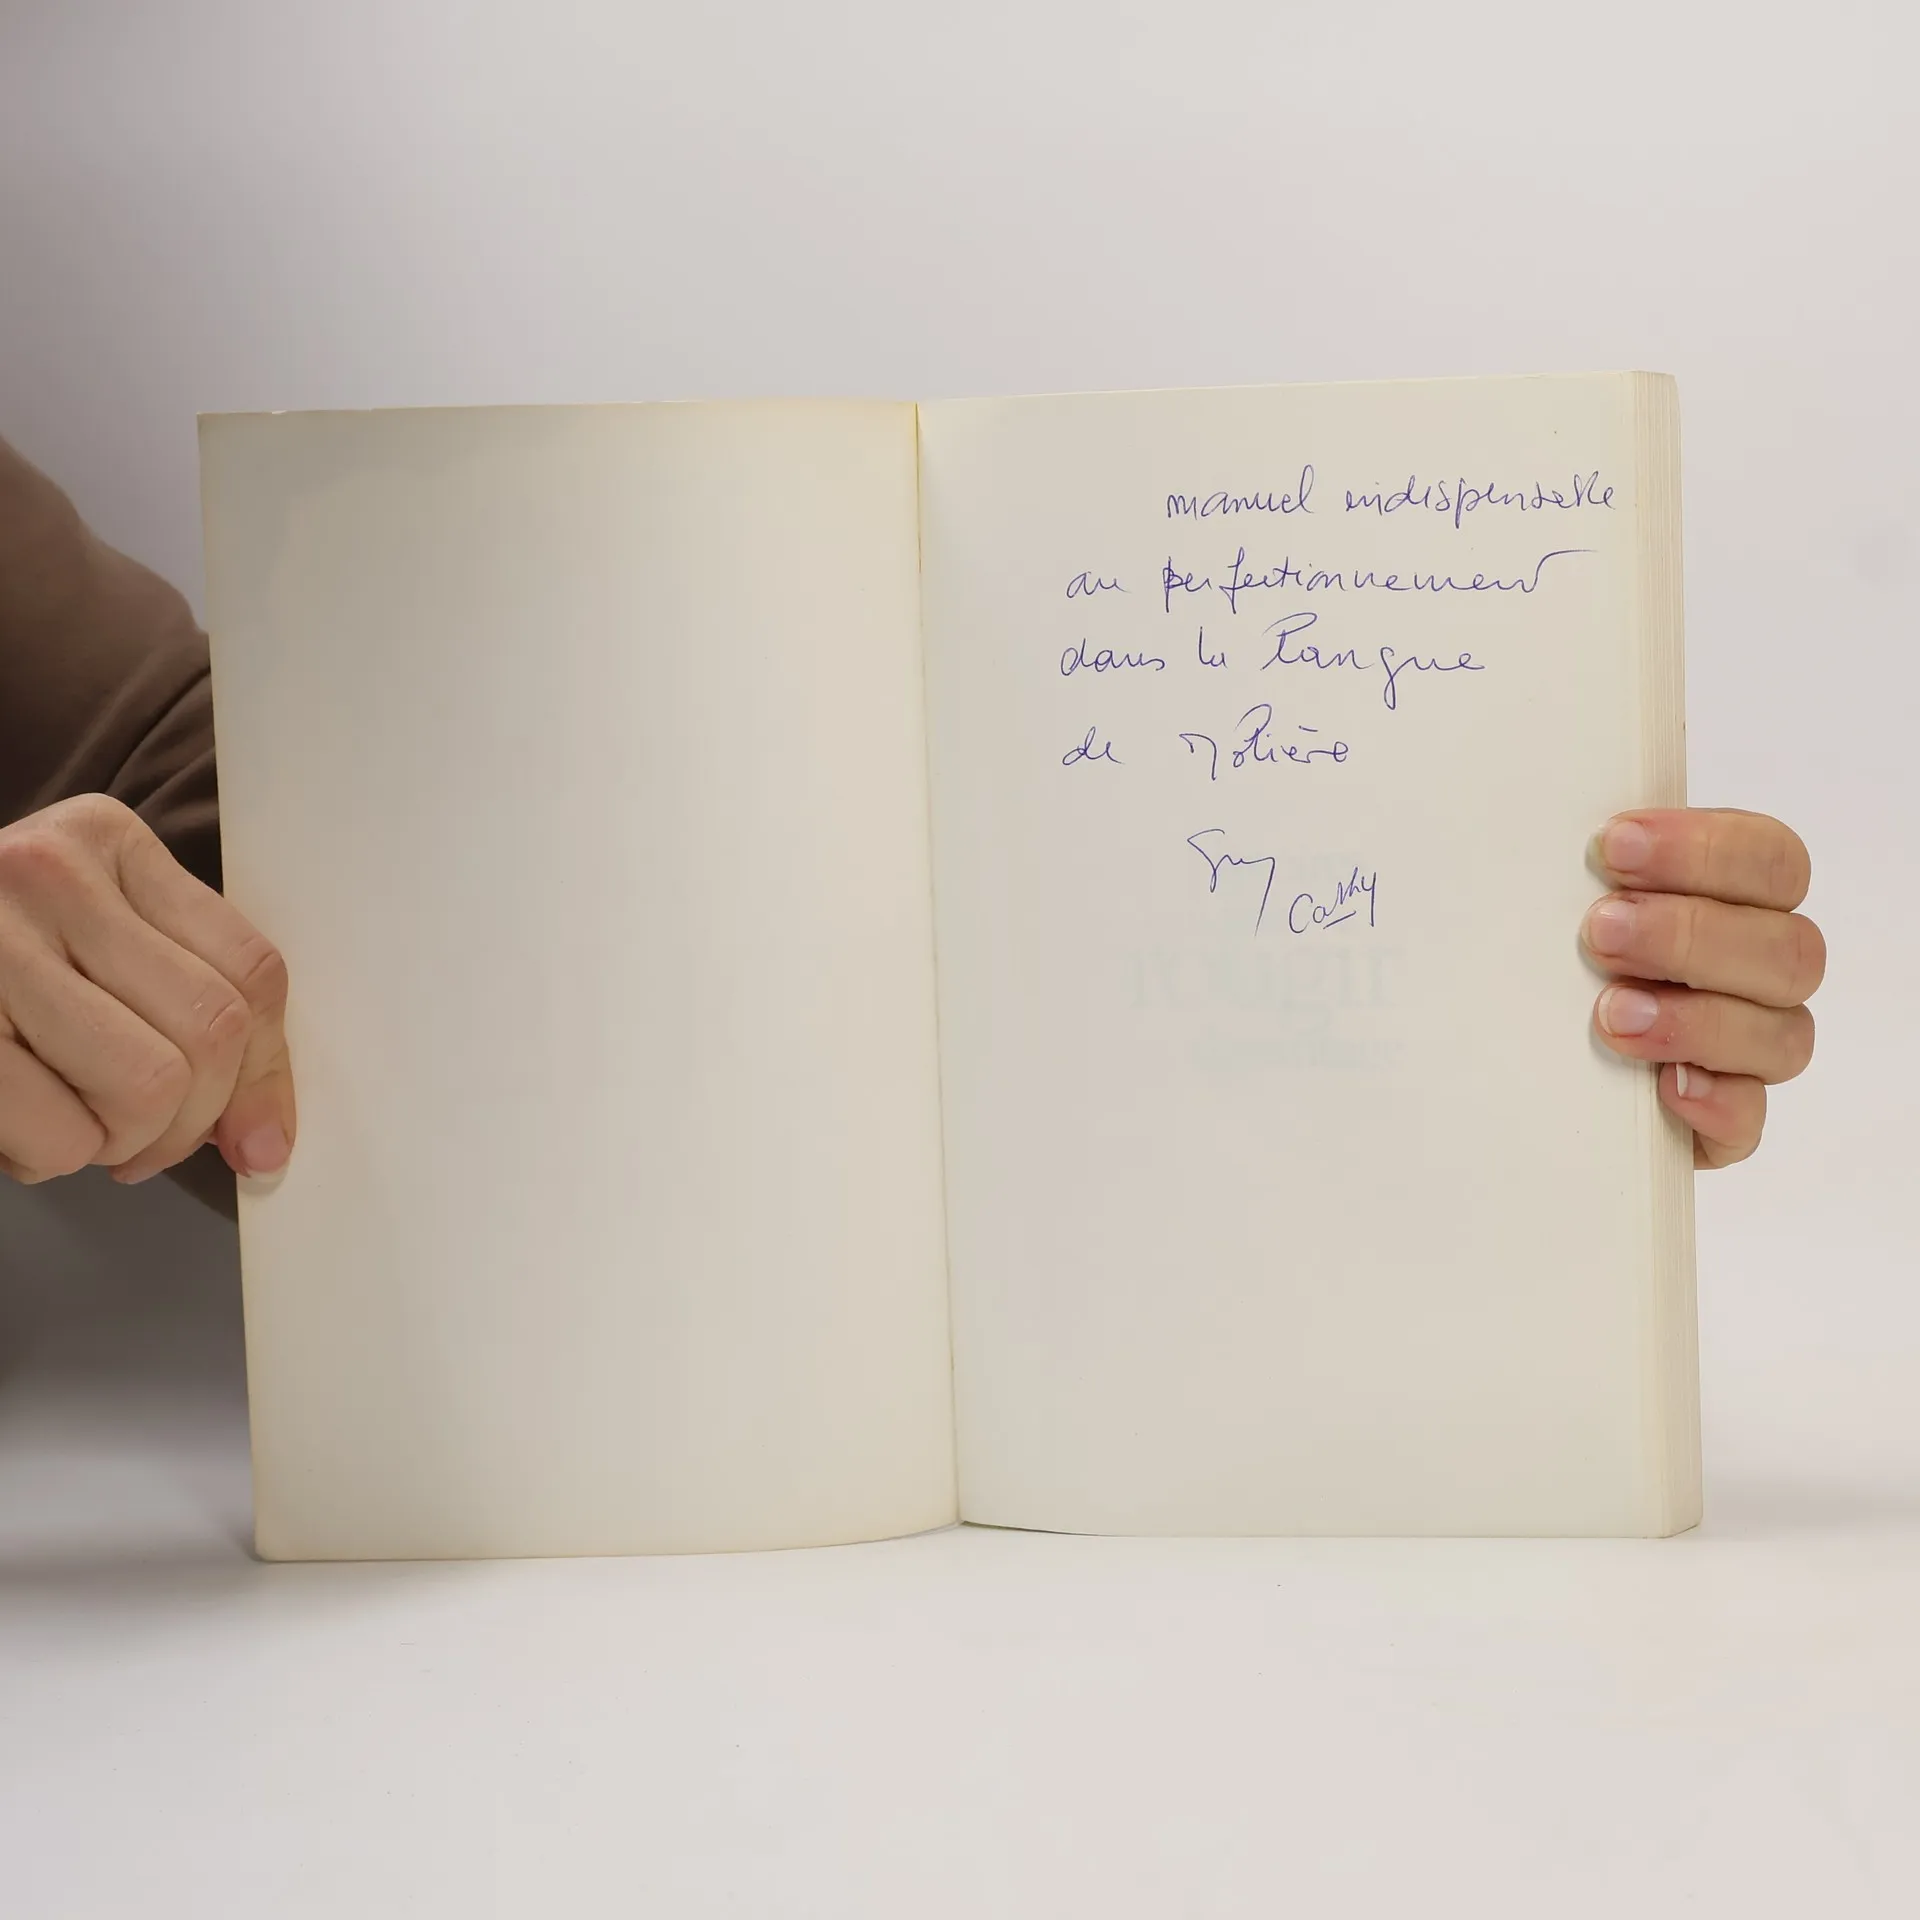 manuel indispensable
au perfectionnement
dans la langue
de Molière
Guy
Cathy